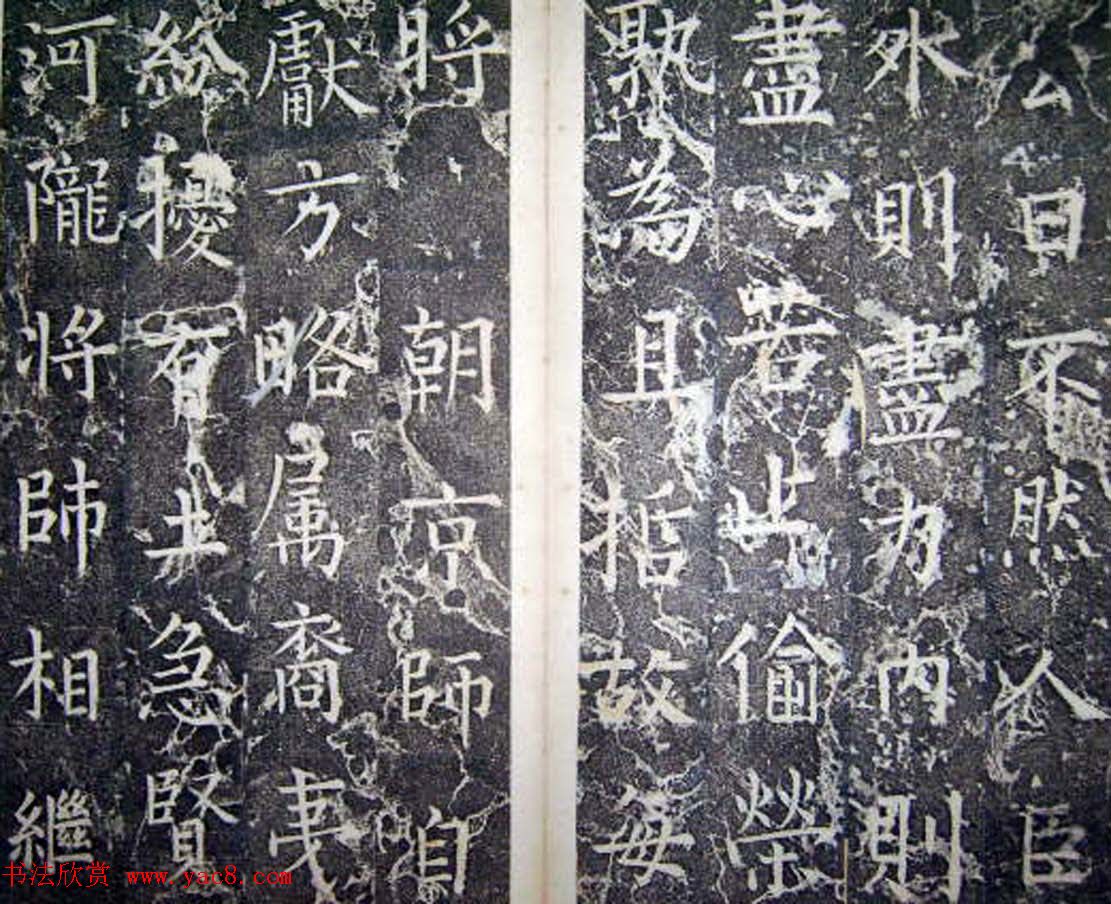 公曰不然人臣
外則盡力內則
盡心若此偷榮
孰為且拒故每
將朝京師自
獻方略屬裔夷
紛擾有土急賢
河隴將帥相繼
书法欣赏 www.yac8.com